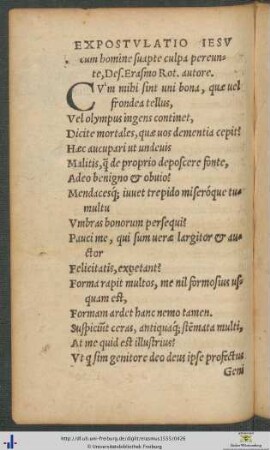 EXPOSTVLATIO IESV
cum homine suapte culpa pereun-
te, Des. Erasmo Rot. autore.
CVm mihi sint uni bona, quæ uel
frondea tellus,
Vel olympus ingens continet,
Dicite mortales, quæ uos dementia cepit?
Hæc aucupari ut undeuis
Malitis, q̃ de proprio deposcere fonte,
Adeo benigno & obuio?
Mendacesq; iuuet trepido miseróque tu-
multu
Vmbras bonorum persequi?
Pauci me, qui sum ueræ largitor & au-
ctor
Felicitatis, expetant?
Forma rapit multos, me nil formosius us-
quam est,
Formam ardet hanc nemo tamen.
Suspiciũt ceras, antiquaq; stẽmata multi,
At me quid est illustrius?
Vt q sim genitore deo deus ipse profectus
Geni
http://dl.ub.uni-freiburg.de/diglit/erasmus1555/0426
© Universitätsbibliothek Freiburg